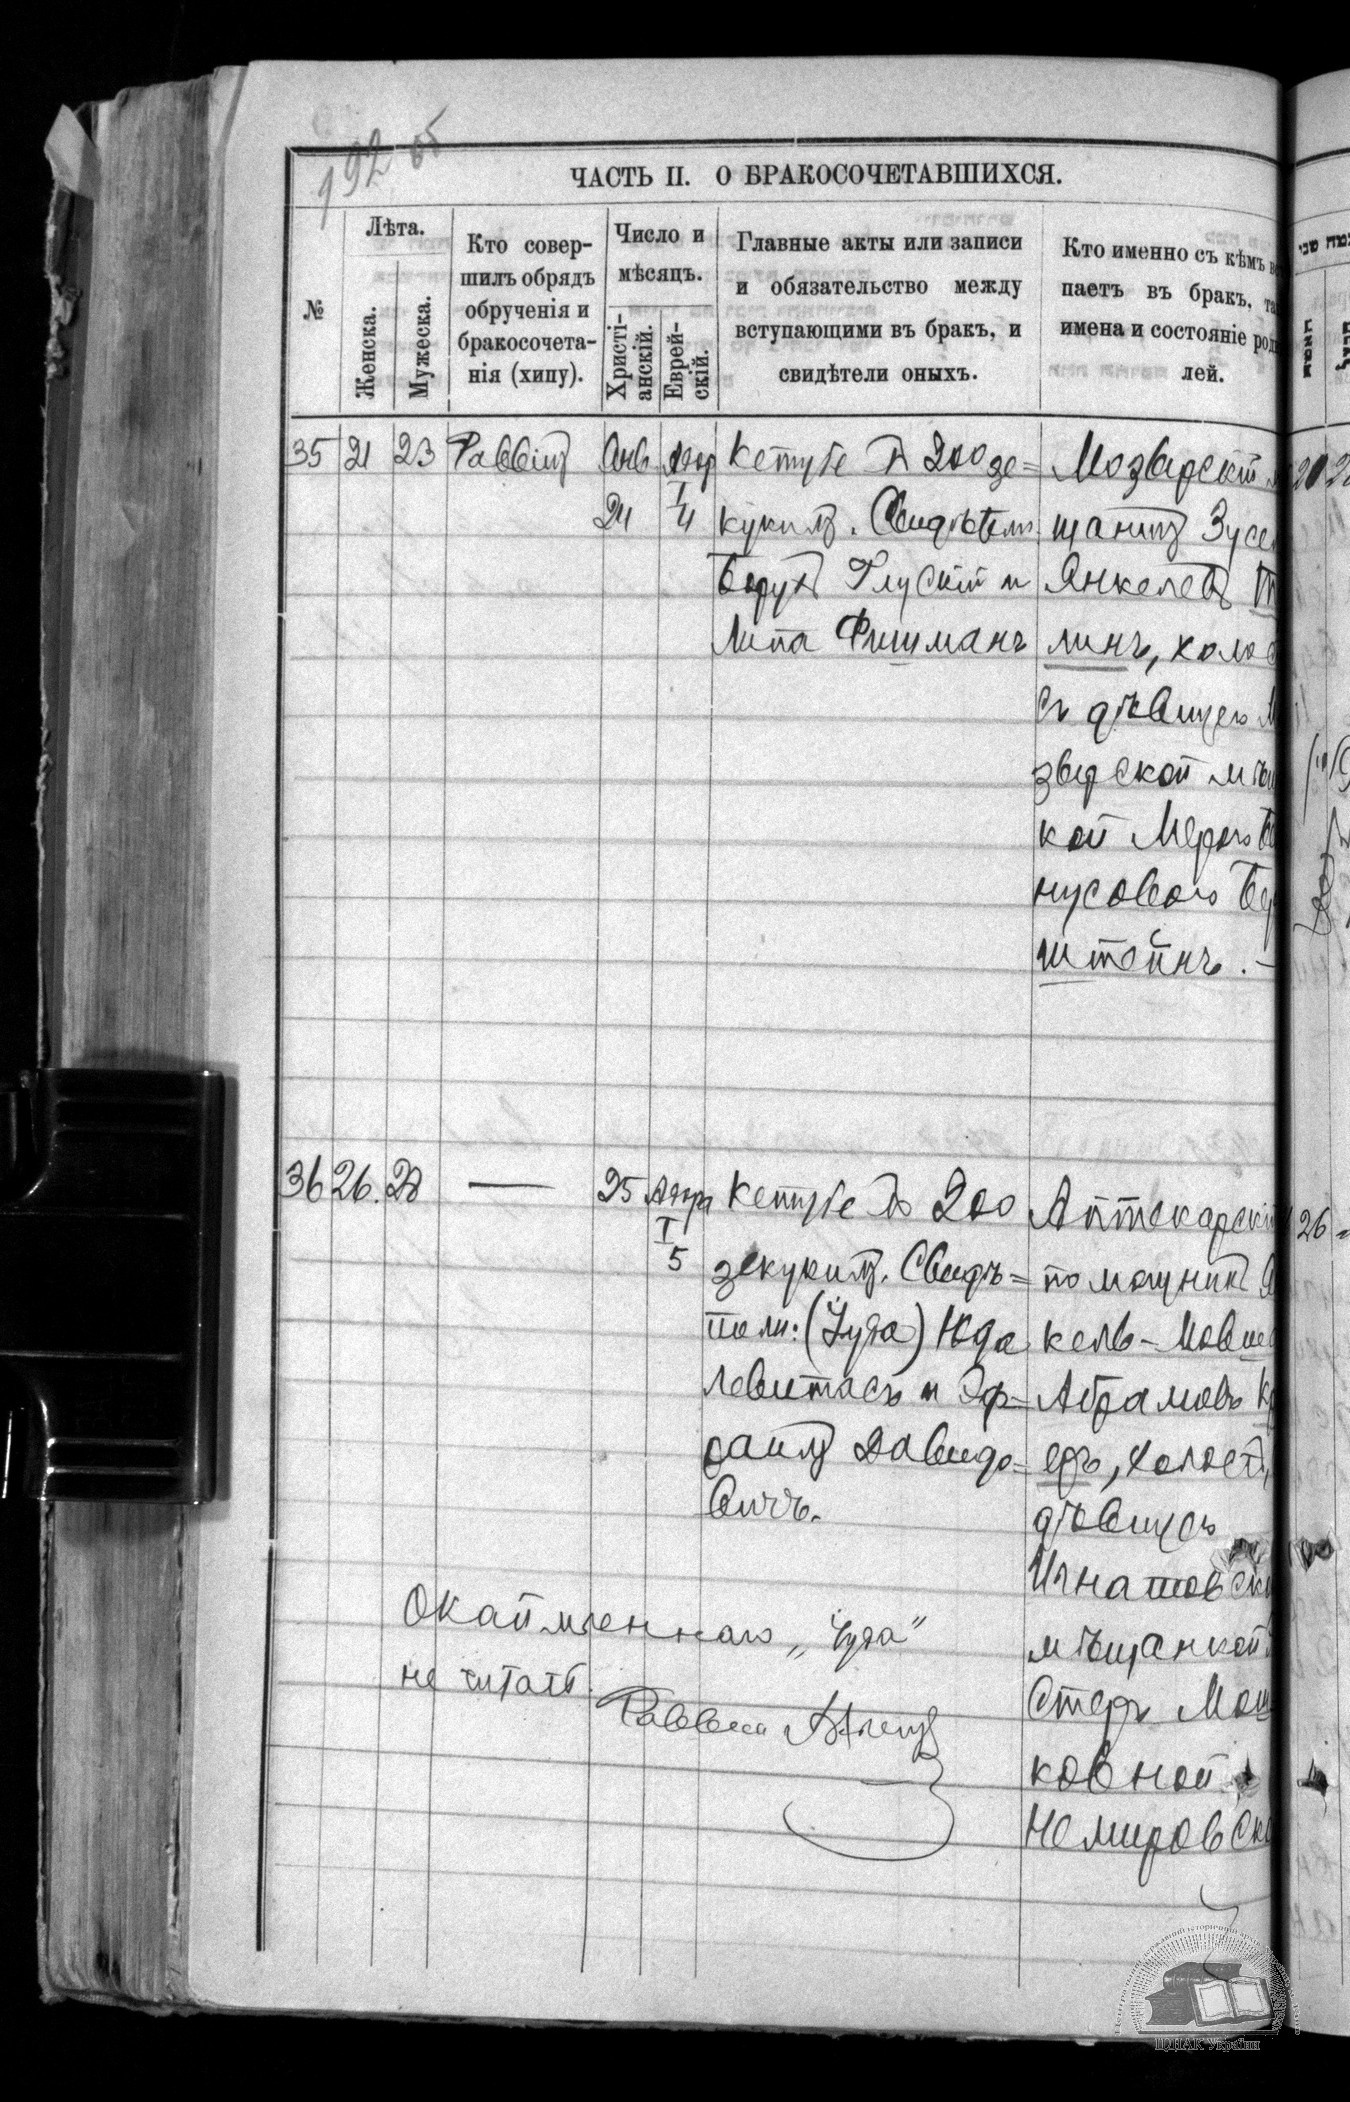 192 об
ЧАСТЬ II. О БРАКОСОЧЕТАВШИХСЯ.
№
Лѣта.
Женска.
Мужеска.
Кто совер-
шилъ обрядъ
обрученія и
бракосочета-
нія (хипу).
Число и
мѣсяцъ.
Христі-
анскій.
Еврей-
скій.
Главные акты или записи
и обязательство между
вступающими въ бракъ, и
свидѣтели оныхъ.
Кто именно съ кѣмъ
паетъ въ бракъ,
имена и состояніе
лей.
35 21 23 Раввинъ Янв 24 Адар I 4
Кетубе въ 200 зе=
кукимъ. Свидѣтели
Борухъ Глускій и
Липа Фишманъ
Мозырскій
щанинъ
Янкелевъ
линъ, холост
съ дѣвицею
зырской
кой Мерою
нусовою
штейнъ. —
36 26. 28 — 25 Адара I 5
Кетубе въ 200
зекукимъ. Свидѣ=
тели: (Чуда) Юда
Левитасъ и Эф=
раимъ Давидо=
вичъ.
Аптекарскій
помощникъ
кель-Мовше
Абрамовъ
еръ, холостъ,
дѣвицею
Игнатовск
мѣщанкой
Стеръ
ковной
Немировск
Окаймленнаго „Чуда"
не читать.
Раввинъ
20
26
ЦДІАК України